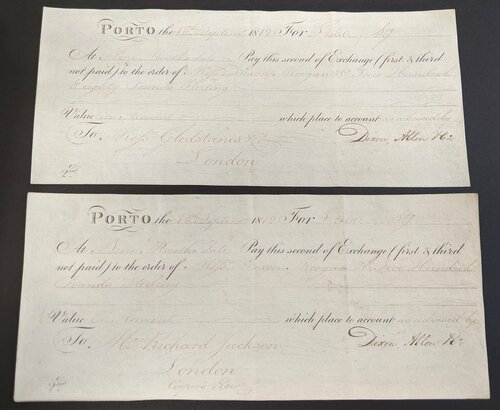 PORTO the 15th Septem 1819 For Stg
At Nine Months date Pay this second of Exchange (first & third
not paid) to the order of Messrs Dixon Morgan & Co Four Hundred
Eighty Pounds Sterling
Value in Account which place to account as advised by
To Messrs Gledstanes & Co Dixon, Allen & Co
London
2nd
PORTO the 15th Septem 1819 For Stg
At Nine Months date Pay this second of Exchange (first & third
not paid) to the order of Messrs Dixon Morgan & Co Five Hundred
Pounds Sterling
Value in Account which place to account as advised by
To Mr Richard Jackson Dixon Allen & Co
London
2nd